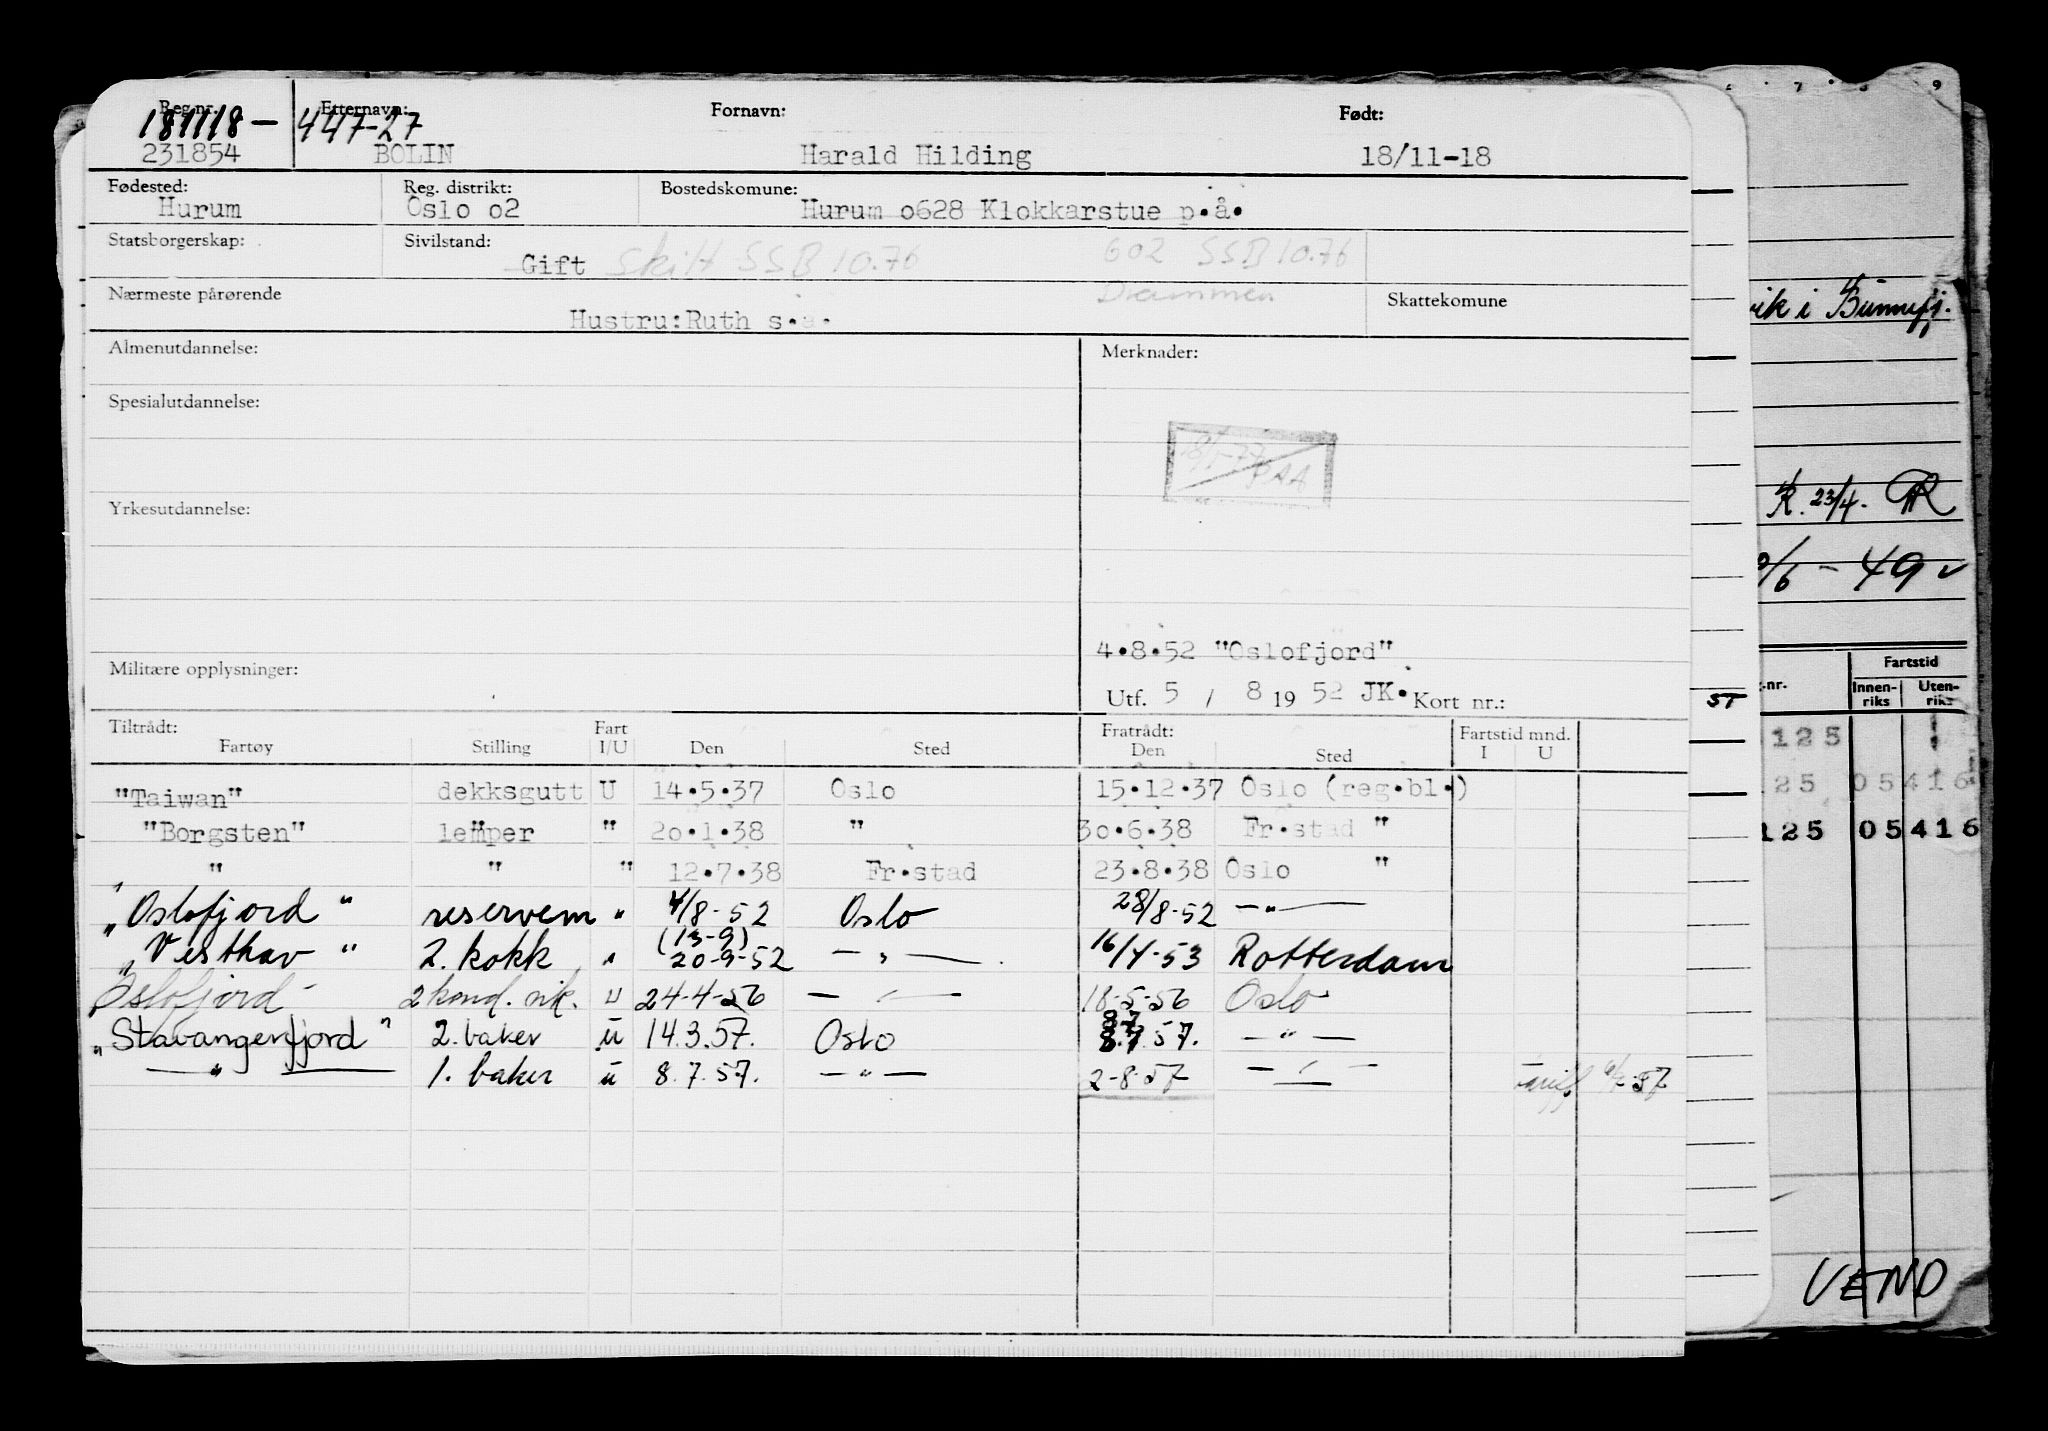 Reg.nr. Etternavn: Fornavn: Født:
181118- 447-27
231854 BOLIN Harald Hilding 18/11-18
Fødested: Reg. distrikt: Bostedskomune:
Hurum Oslo o2 Hurum o628 Klokkarstue p.å.
Statsborgerskap: Sivilstand:
Gift Skilt SSB 10.76 602 SSB 10.76
Nærmeste pårørende Drammen Skattekomune
Hustru:Ruth s.a.
Almenutdannelse: Merknader:
Spesialutdannelse:
Yrkesutdannelse:
4.8.52 "Oslofjord"
Militære opplysninger:
Utf. 5 / 8 19 52 JK. Kort nr.:
Tiltrådt: Fart Fratrådt: Fartstid mnd.
Fartøy Stilling I/U Den Sted Den Sted I U
"Taiwan" dekksgutt U 14.5.37 Oslo 15.12.37 Oslo (reg.bl.)
"Borgsten" lemper " 20.1.38 " 30.6.38 Fr.stad "
" " " 12.7.38 Fr.stad 23.8.38 Oslo "
"Oslofjord" reservem " 4/8-52 Oslo 28/8-52 - " -
(13-9)
"Vesthav" 2. kokk " 20-9-52 - " - 16/4-53 Rotterdam
Oslofjord 2 kond. vik. U 24-4-56 - " - 18-5-56 Oslo
8.7
"Stavangerfjord" 2. baker u 14.3.57. Oslo 8.7.57. - " -
- " - 1. baker u 8.7.57. - " - 2-8-57 - " -
7 8 9
vik i Bunnefj.
R. 23/4.
/6 - 49
-nr. Fartstid
Innen-riks Uten-riks
ST
125
125 05416
125 05416
VEND